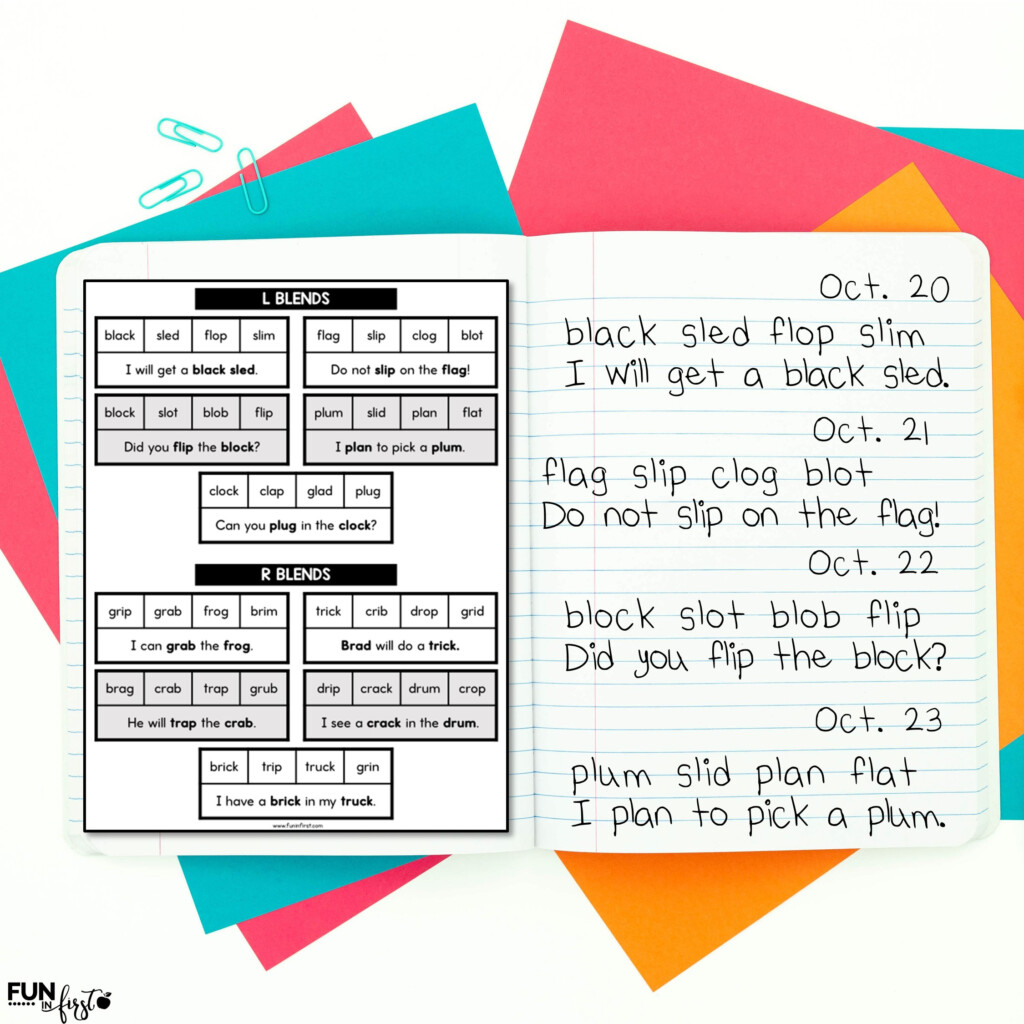 L BLENDS
black sled flop slim
I will get a black sled.
flag slip clog blot
Do not slip on the flag!
block slot blob flip
Did you flip the block?
plum slid plan flat
I plan to pick a plum.
clock clap glad plug
Can you plug in the clock?
R BLENDS
grip grab frog brim
I can grab the frog.
trick crib drop grid
Brad will do a trick.
brag crab trap grub
He will trap the crab.
drip crack drum crop
I see a crack in the drum.
brick trip truck grin
I have a brick in my truck.
www.funinfirst.com
Oct. 20
black sled flop slim
I will get a black sled.
Oct. 21
flag slip clog blot
Do not slip on the flag!
Oct. 22
block slot blob flip
Did you flip the block?
Oct. 23
plum slid plan flat
I plan to pick a plum.
FUN
IN first